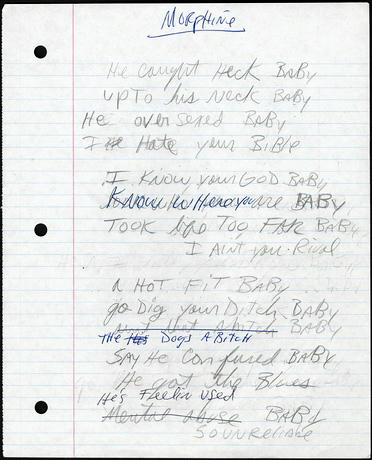 Morphine
He Caught Heck BABY
upTo his Neck BABY
He over sexed BABY
I Hate your BiBle
I Know your GOD BABY
Know wHere you are BABY
TOOK Too FAR BABY
I Aint your Rival
A HOT FIT BABY
go Dig your Ditch BABY
BABY
The Dogs A Bitch
SAY He Confused BABY
He got the Blues
He's Feelin used
Mental abuse BABY
SO UNReliable